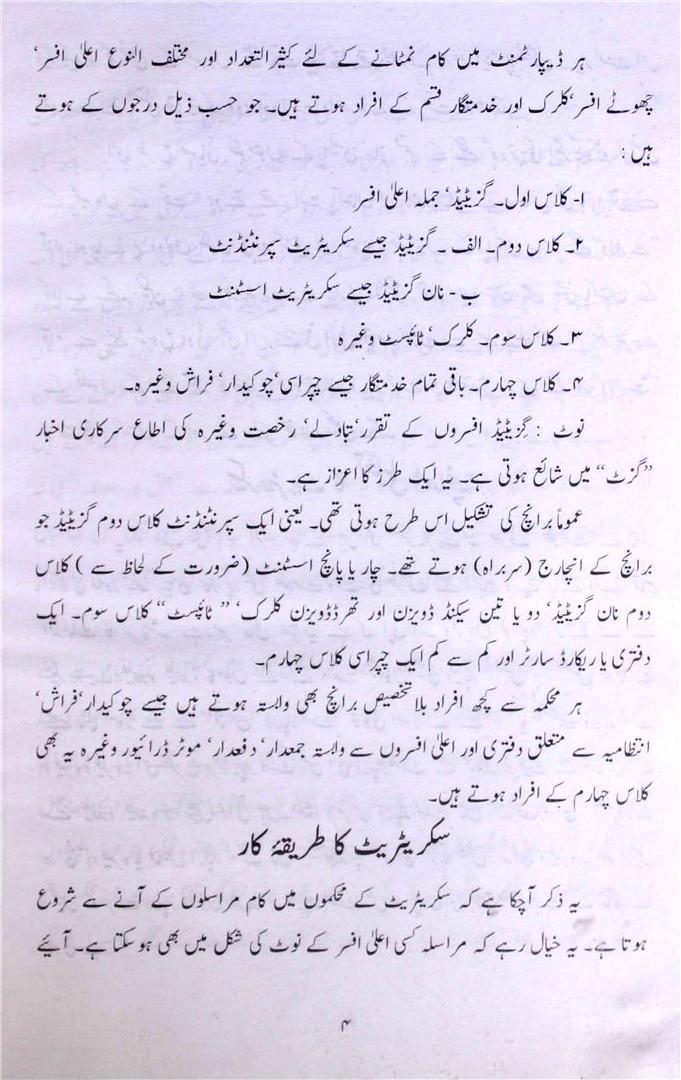 ہر ڈیپارٹمنٹ میں کام نمٹانے کے لئے کثیرالتعداد اور مختلف النوع اعلیٰ افسر'
چھوٹے افسر'کلرک اور خدمتگار قسم کے افراد ہوتے ہیں۔ جو حسب ذیل درجوں کے ہوتے
ہیں:
۱- کلاس اول۔ گزیٹیڈ' جملہ اعلیٰ افسر
۲۔ کلاس دوم۔ الف ۔ گزیٹیڈ جیسے سکریٹریٹ سپرنٹنڈنٹ
ب - نان گزیٹیڈ جیسے سکریٹریٹ اسسٹنٹ
۳۔ کلاس سوم۔ کلرک' ٹائپسٹ وغیرہ
۴۔ کلاس چہارم۔ باقی تمام خدمتگار جیسے چپراسی'چوکیدار' فراش وغیرہ۔
نوٹ : گزیٹیڈ افسروں کے تقرر'تبادلے' رخصت وغیرہ کی اطاع سرکاری اخبار
"گزٹ" میں شائع ہوتی ہے۔ یہ ایک طرز کا اعزاز ہے۔
عموماً برانچ کی تشکیل اس طرح ہوتی تھی۔ یعنی ایک سپرنٹنڈنٹ کلاس دوم گزیٹیڈ جو
برانچ کے انچارج (سربراہ) ہوتے تھے۔ چار یا پانچ اسسٹنٹ (ضرورت کے لحاظ سے) کلاس
دوم نان گزیٹیڈ' دو یا تین سیکنڈ ڈویزن اور تھرڈ ڈویزن کلرک' "ٹائپسٹ" کلاس سوم۔ ایک
دفتری یا ریکارڈ سارٹر اور کم سے کم ایک چپراسی کلاس چہارم۔
ہر محکمہ سے کچھ افراد بلا تخصیص برانچ بھی وابستہ ہوتے ہیں جیسے چوکیدار'فراش'
انتظامیہ سے متعلق دفتری اور اعلیٰ افسروں سے وابستہ جمعدار' دفعدار' موٹر ڈرائیور وغیرہ یہ بھی
کلاس چہارم کے افراد ہوتے ہیں۔
سکریٹریٹ کا طریقۂ کار
یہ ذکر آچکا ہے کہ سکریٹریٹ کے محکموں میں کام مراسلوں کے آنے سے شروع
ہوتا ہے۔ یہ خیال رہے کہ مراسلہ کسی اعلیٰ افسر کے نوٹ کی شکل میں بھی ہو سکتا ہے۔ آیئے
۴